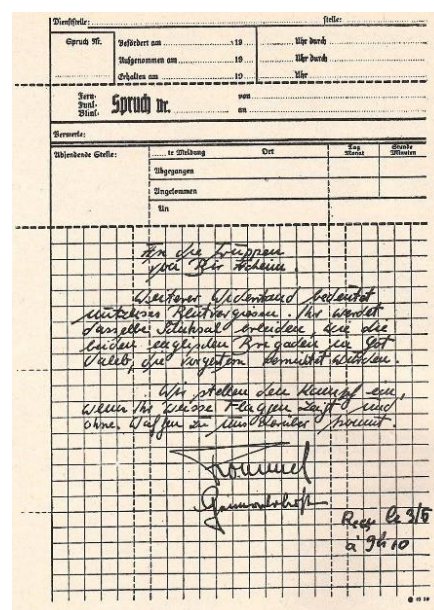 Dienststelle: stelle:
Spruch Nr. Befördert am 19 Uhr durch
Aufgenommen am 19 Uhr durch
Erhalten am 19 Uhr
Fern-
Funk-
Blink-
Spruch Nr.
von
an
Vermerke:
Absendende Stelle: te Meldung Ort Tag Monat Stunde Minuten
Abgegangen
Angekommen
An
An die Truppen
von Bir Acheim.
Weiterer Widerstand bedeutet
nutzloses Blutvergiessen. Ihr werdet
dasselbe Schiksal erleiden, wie die
beiden englischen Brigaden in Got
Ualeb, die vorgestern vernichtet wurden.
Wir stellen den Kampf ein,
wenn Ihr weisse Flaggen zeigt und
ohne Waffen zu uns herüber kommt.
Rommel
Generaloberst
Reçu le 3/6
à 9h 10